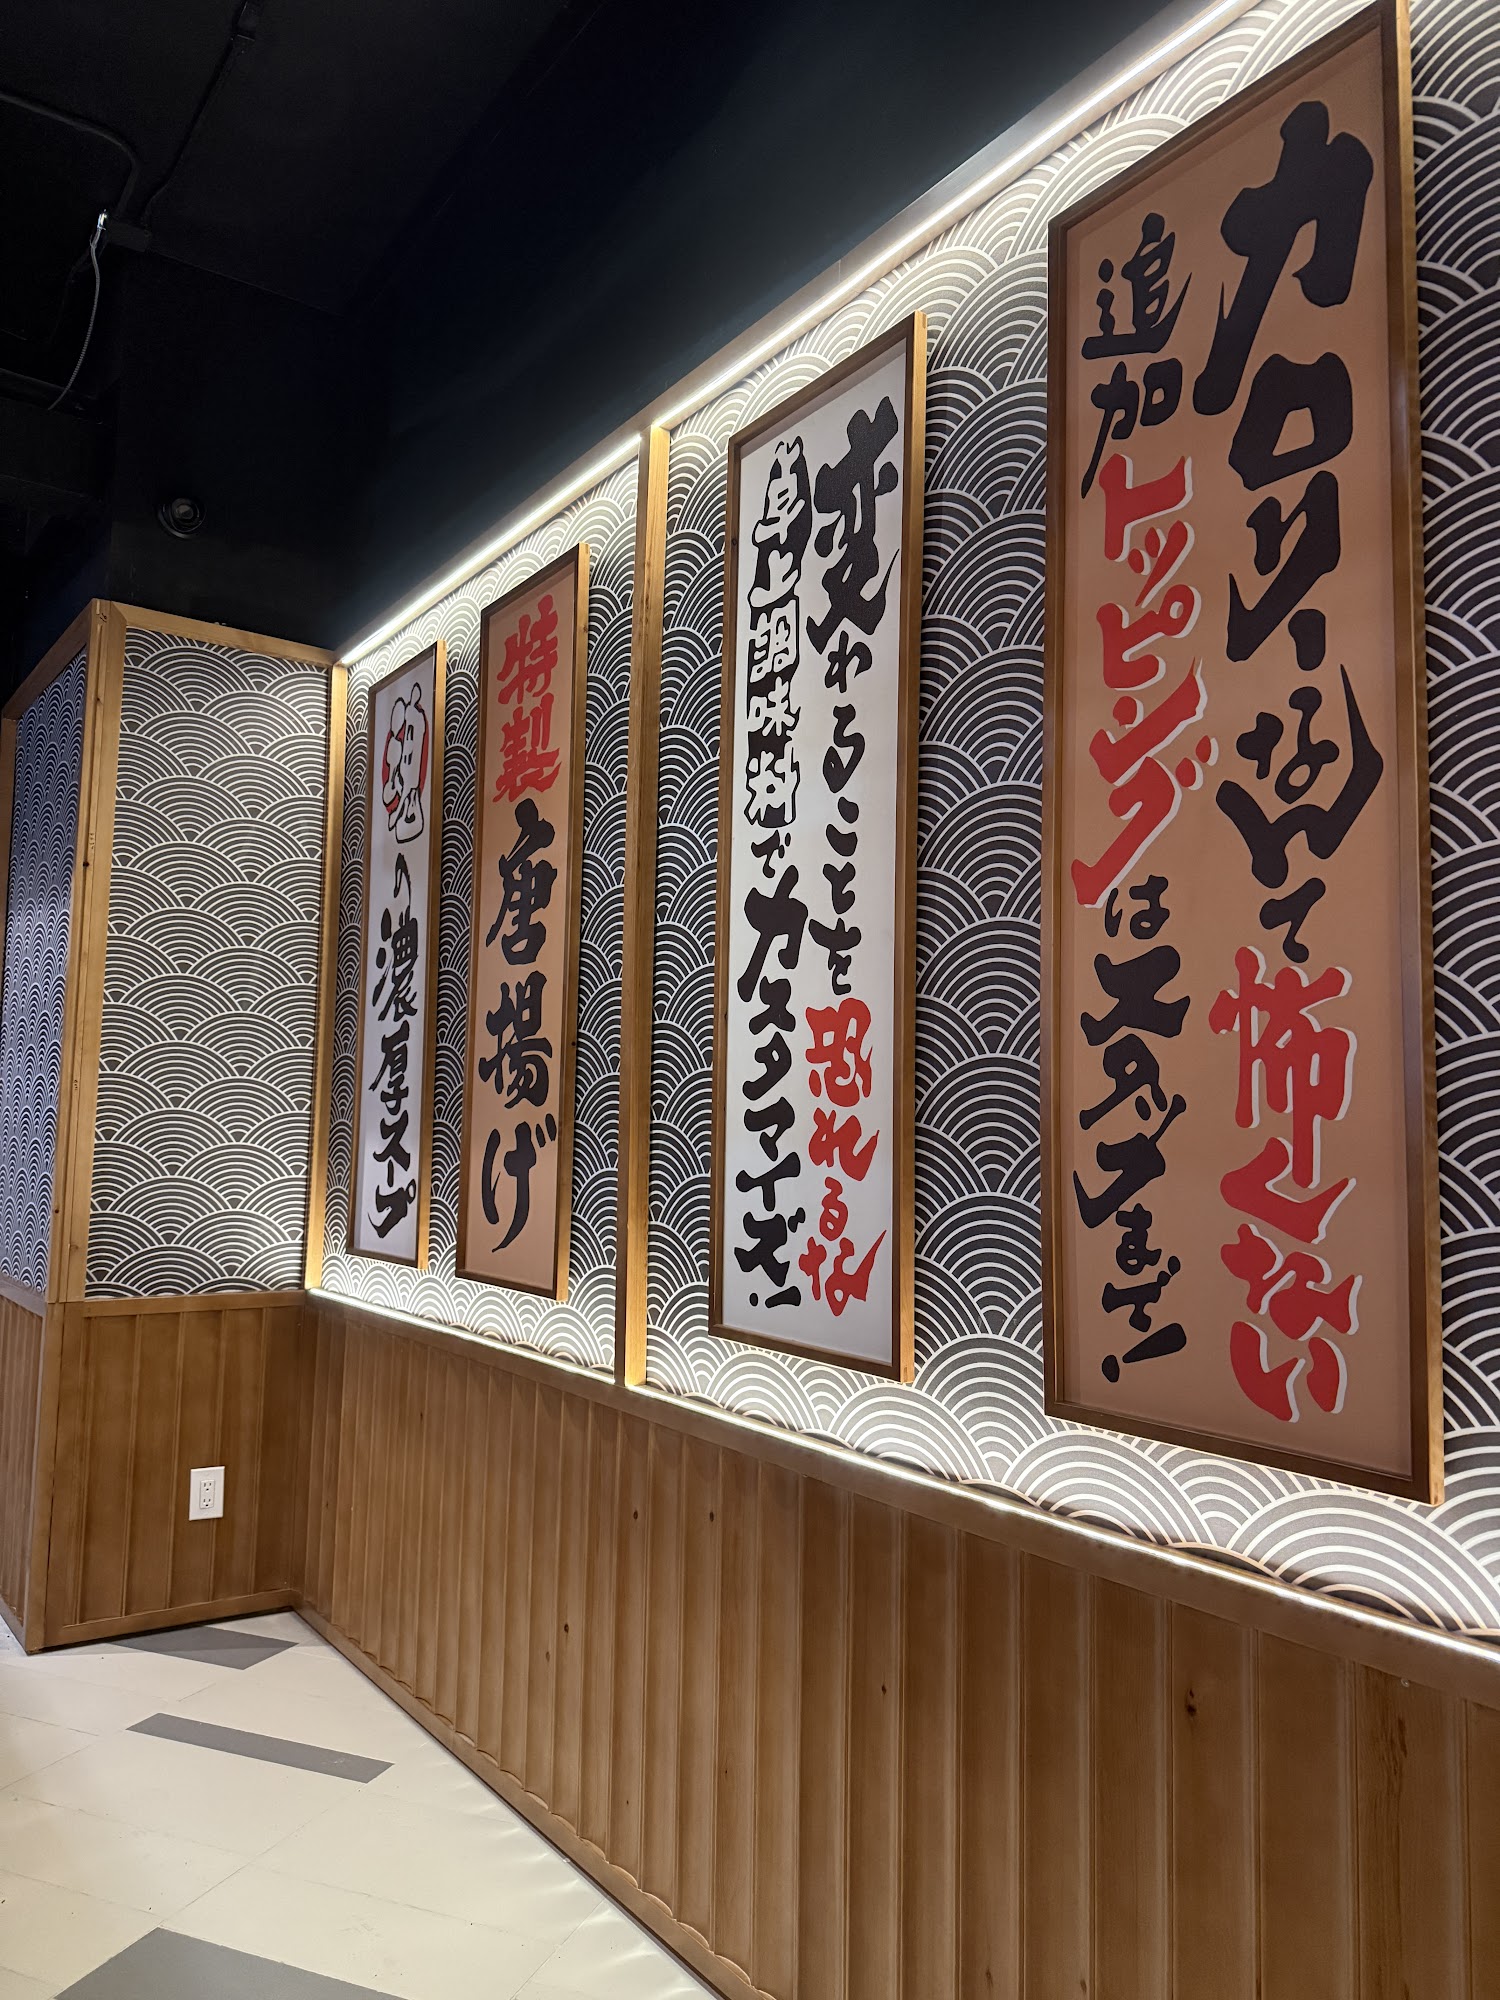 カロリーなんて怖くない
追加トッピングはスタッフまで！
変わることを恐れるな
卓上調味料でカスタマイズ！
特製唐揚げ
の濃厚スープ